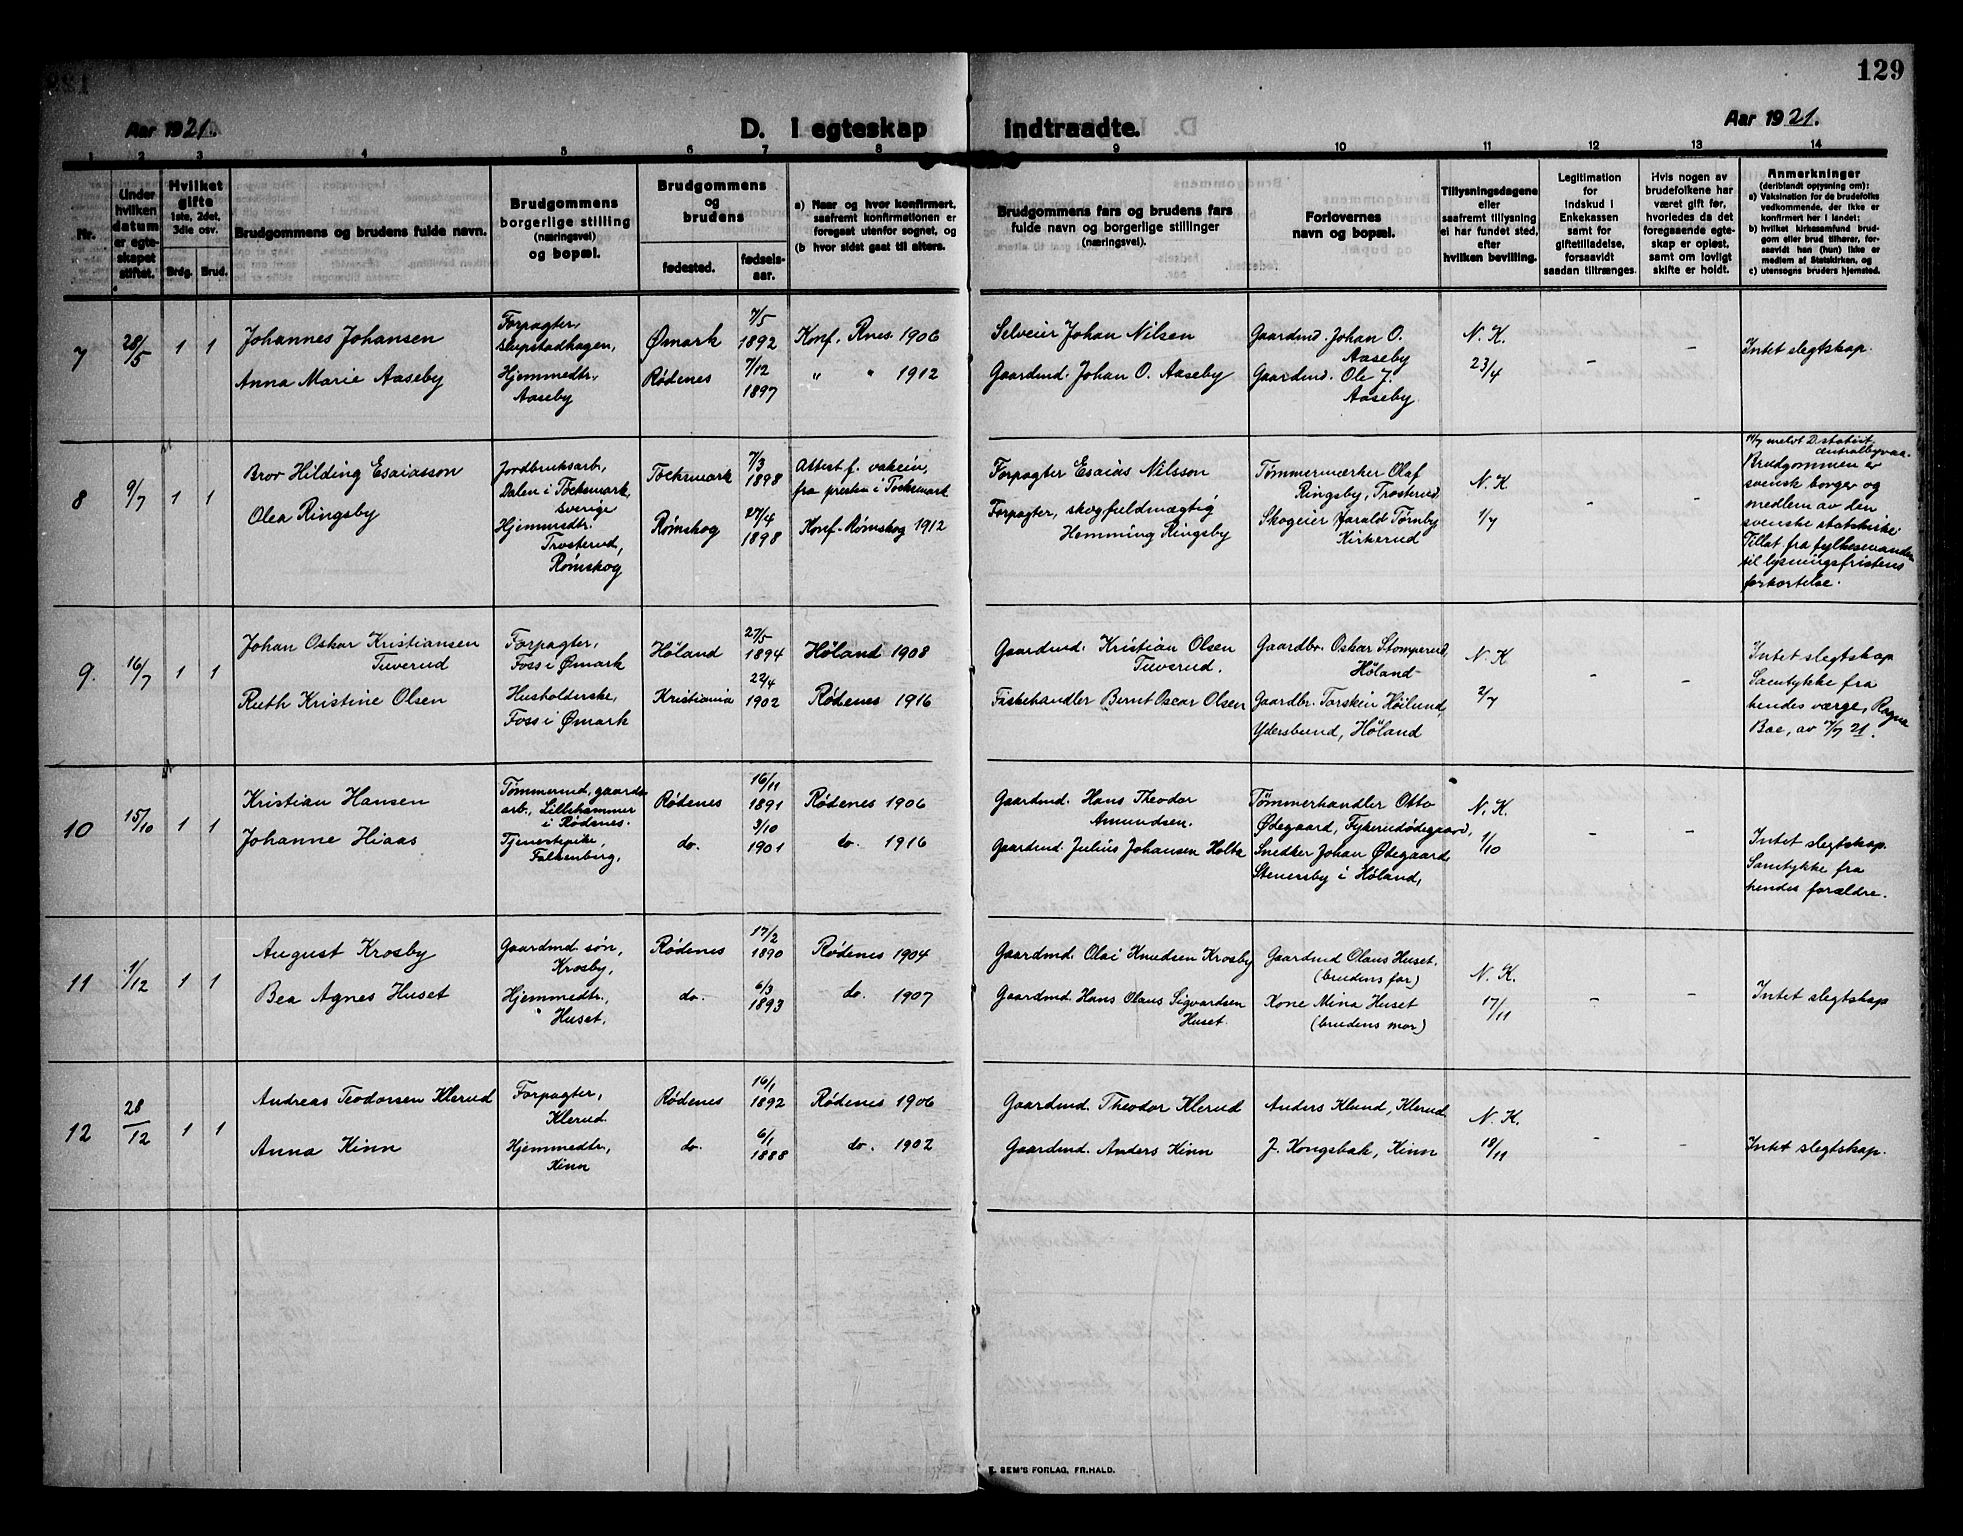 129
Aar 1921.
D. I egteskap indtraadte.
Aar 1921.
1 2 3 4 5 6 7 8 9 10 11 12 13 14
Nr.
Under hvilken datum er egteskapet stiftet.
Hvilket gifte 1ste, 2det, 3die osv.
Brdg. Brud.
Brudgommens og brudens fulde navn.
Brudgommens borgerlige stilling (næringsvei) og bopæl.
Brudgommens og brudens
fødested.
fødselsaar.
a) Naar og hvor konfirmert, saafremt konfirmationen er foregaat utenfor sognet, og
(b hvor sidst gaat til alters.
Brudgommens fars og brudens fars fulde navn og borgerlige stillinger (næringsvei).
Forlovernes navn og bopæl.
Tillysningsdagene eller saafremt tillysning ei har fundet sted, efter hvilken bevilling.
Legitimation for indskud i Enkekassen samt for giftetilladelse, forsaavidt saadan tiltrænges.
Hvis nogen av brudefolkene har været gift før, hvorledes da det foregaaende egteskap er opløst, samt om lovligt skifte er holdt.
Anmerkninger (deriblandt opjysning om):
a) Vaksination for de brudefolks vedkommende, der ikke er konfirmert her i landet;
b) hvilket kirkesamfund brudgom eller brud tilhører, forsaavidt han (hun) ikke er medlem af Statskirken, og
c) utensogns bruders hjemsted.
7 28/5 1 1
Johannes Johansen
Anna Marie Aaseby
Forpagter,
Slupstadhagen,
Hjemmedtr.
Aaseby
Ømark
Rødenes
7/5 1892
7/12 1897
Konf. Rnes 1906
" " 1912
Selveier Johan Nilsen
Gaardmd. Johan O. Aaseby
Gaardmd. Johan O.
Aaseby
Gaardmd. Ole J.
Aaseby
N. K.
23/4
- -
Intet slegtskap.
8 9/7 1 1
Bror Hilding Esaiasson
Olea Ringsby
Jordbruksarb,
Dalen i Töcksmark,
Sverige
Hjemmedtr.
Trosterud,
Rømskog
Töcksmark
Rømskog
7/3 1898
27/4 1898
Attest f. vakcin,
fra presten i Töcksmark
Konf. Rømskog 1912
Forpagter Esaias Nilsson
Forpagter, skogfuldmægtig
Hemming Ringsby
Tømmermærker Olaf
Ringsby, Trosterud
Skogeier Harald Tørnby
Kirkerud
N. K
1/7
- -
11/7 meldt D. statist.
centralbyraa.
Brudgommen er
svensk borger og
medlem av den
svenske statskirke.
Tillat. fra fylkesmanden
til lysningsfristens
forkortelse.
9. 16/7 1 1
Johan Oskar Kristiansen
Tuverud
Ruth Kristine Olsen
Forpagter,
Foss i Ømark
Husholderske,
Foss i Ømark
Høland
Kristiania
27/5 1894
22/4 1902
Høland 1908
Rødenes 1916
Gaardmd. Kristian Olsen
Tuverud.
Fiskehandler Bernt Oscar Olsen
Gaardbr. Oskar Stomperud,
Høland
Gaardbr. Torstein Høilund,
Ydersbund, Høland
N. K
2/7
- -
Intet slegtskap
Samtykke fra
hendes værge, Ragna
Boe, av 7/7 21.
10 15/10 1 1
Kristian Hansen
Johanne Hiaas
Tømmerud, gaards
arb., Lillehammer
i Rødenes.
Tjenestepike,
Falkenburg.
Rødenes
do.
16/11 1891
3/10 1901
Rødenes 1906
do. 1916
Gaardmd. Hans Theodor
Amundsen.
Gaardmd. Julius Johansen Holta
Tømmerhandler Otto
Ødegaard, Fykerudødegaard,
Snedker Johan Ødegaard
Stenersby i Høland,
N. K.
1/10
- -
Intet slegtskap.
Samtykke fra
hendes forældre.
11 1/12 1 1
August Krosby
Bea Agnes Huset
Gaardmd. søn,
Krosby,
Hjemmedtr.,
Huset.
Rødenes
do.
17/2 1890
6/3 1893
Rødenes 1904
do. 1907
Gaardmd. Olai Knudsen Krosby
Gaardmd. Hans Olaus Sigvardsen
Huset
Gaardmd Olaus Huset.
(brudens far)
Kone Mina Huset
(brudens mor)
N. K.
17/11
- -
Intet slegtskap
12 28/12 1 1
Andreas Teodorsen Klerud
Anna Kinn
Forpagter,
Klerud.
Hjemmedtr.,
Kinn
Rødenes
do.
16/1 1892
6/1 1888
Rødenes 1906
do. 1902
Gaardmd. Theodor Klerud
Gaardmd. Anders Kinn
Anders Klund, Klerud
J. Kongsbak, Kinn
N. K.
18/11
- -
Intet slegtskap.
E. SEM'S FORLAG, FR.HALD.